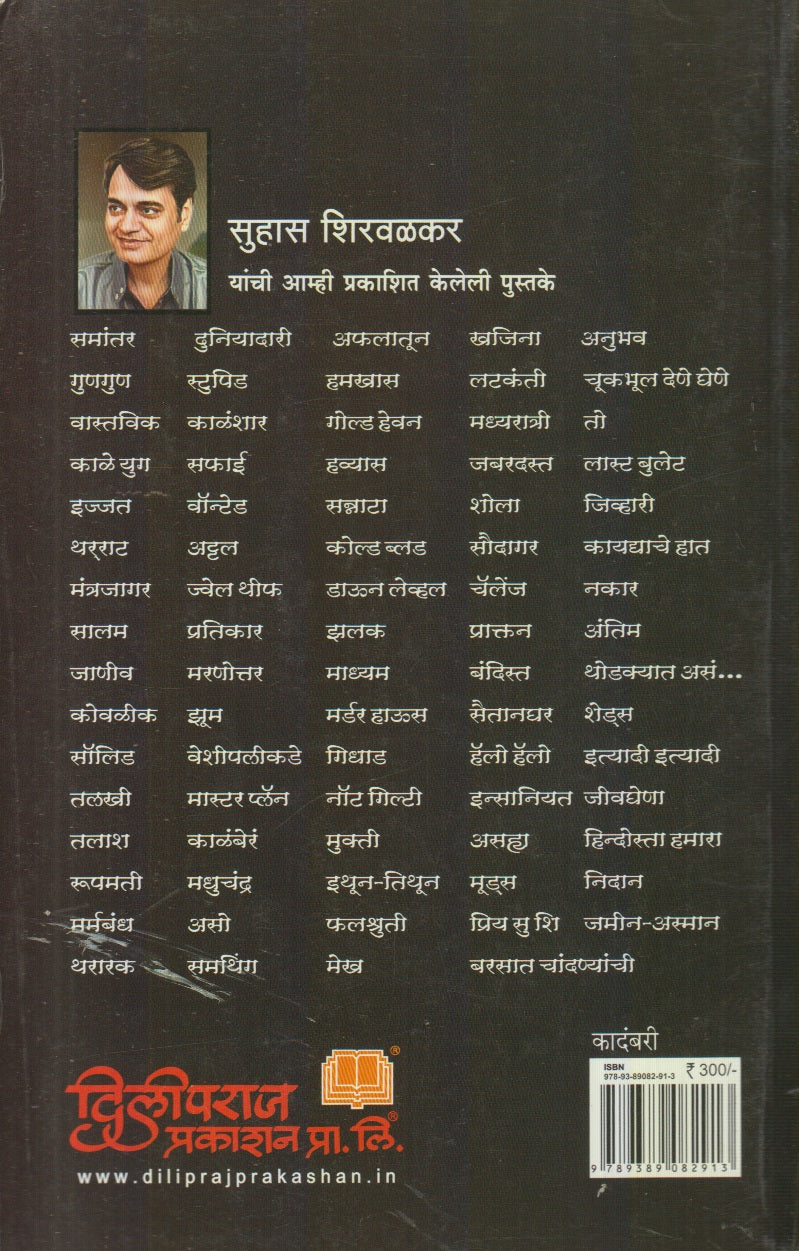 सुहास शिरवळकर
यांची आम्ही प्रकाशित केलेली पुस्तके
समांतर दुनियादारी अफलातून खजिना अनुभव
गुणगुण स्टुपिड हमखास लटकंती चूकभूल देणे घेणे
वास्तविक काळंशार गोल्ड हेवन मध्यरात्री तो
काळे युग सफाई हव्यास जबरदस्त लास्ट बुलेट
इज्जत वॉन्टेड सन्नाटा शोला जिव्हारी
थर्राट अट्टल कोल्ड ब्लड सौदागर कायद्याचे हात
मंत्रजागर ज्वेल थीफ डाऊन लेव्हल चॅलेंज नकार
सालम प्रतिकार झलक प्राक्तन अंतिम
जाणीव मरणोत्तर माध्यम बंदिस्त थोडक्यात असं...
कोवळीक झूम मर्डर हाऊस सैतानघर शेड्स
सॉलिड वेशीपलीकडे गिधाड हॅलो हॅलो इत्यादी इत्यादी
तलखी मास्टर प्लॅन नॉट गिल्टी इन्सानियत जीवघेणा
तलाश काळंबेरं मुक्ती असह्य हिन्दोस्ता हमारा
रूपमती मधुचंद्र इथून-तिथून मूड्स निदान
मर्मबंध असो फलश्रुती प्रिय सु शि जमीन-अस्मान
थरारक समथिंग मेख बरसात चांदण्यांची
कादंबरी
ISBN
978-93-89082-91-3 ₹ 300/-
9 789389 082913
®
दिलीपराज
प्रकाशन प्रा. लि.®
www.diliprajprakashan.in